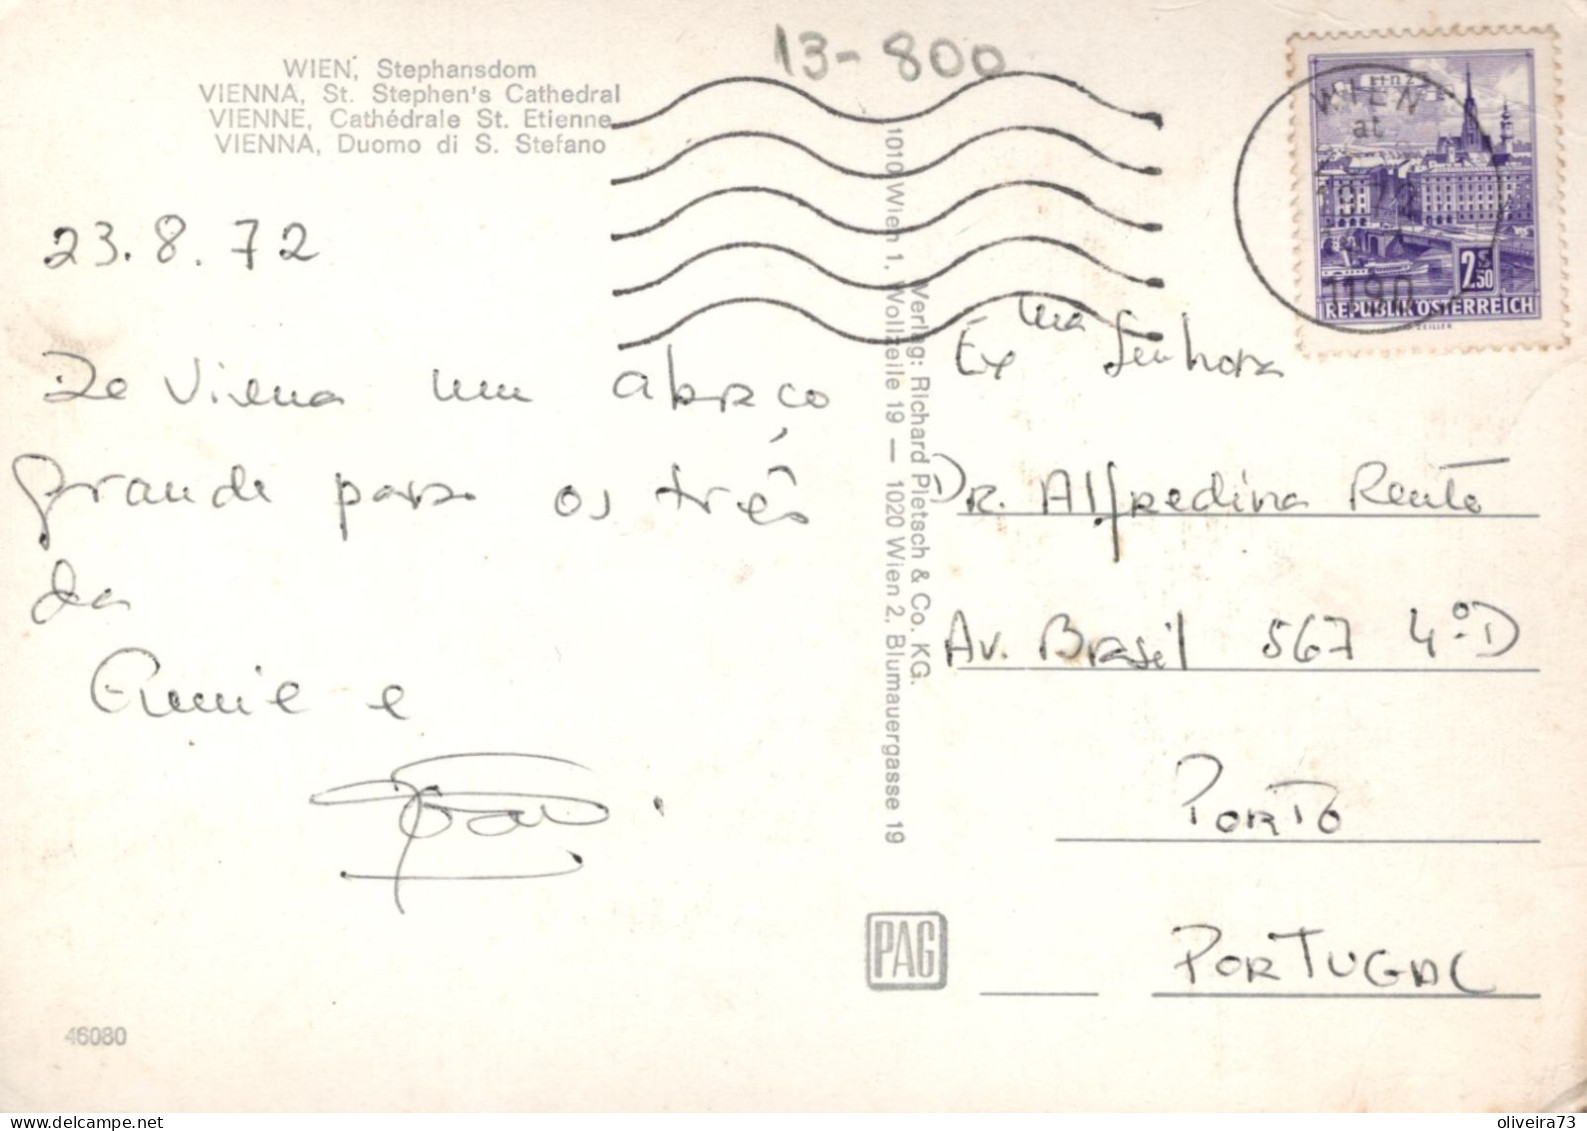 13-800
WIEN, Stephansdom
VIENNA, St. Stephen's Cathedral
VIENNE, Cathédrale St. Etienne
VIENNA, Duomo di S. Stefano
23.8.72
De Viena um abraço
grande para os três
da
Annie e
João.
46080
1010 Wien 1, Wollzeile 19 — 1020 Wien 2, Blumauergasse 19
Verlag: Richard Pietsch & Co. KG.
PAG
Linz
WIEN
at
1190
2.S50
REPUBLIK ÖSTERREICH
ZEILLER
Exma Senhora
Dr. Alfredina
Av. Brasil 567 4.º D
PORTO
PORTUGAL
oliveira73